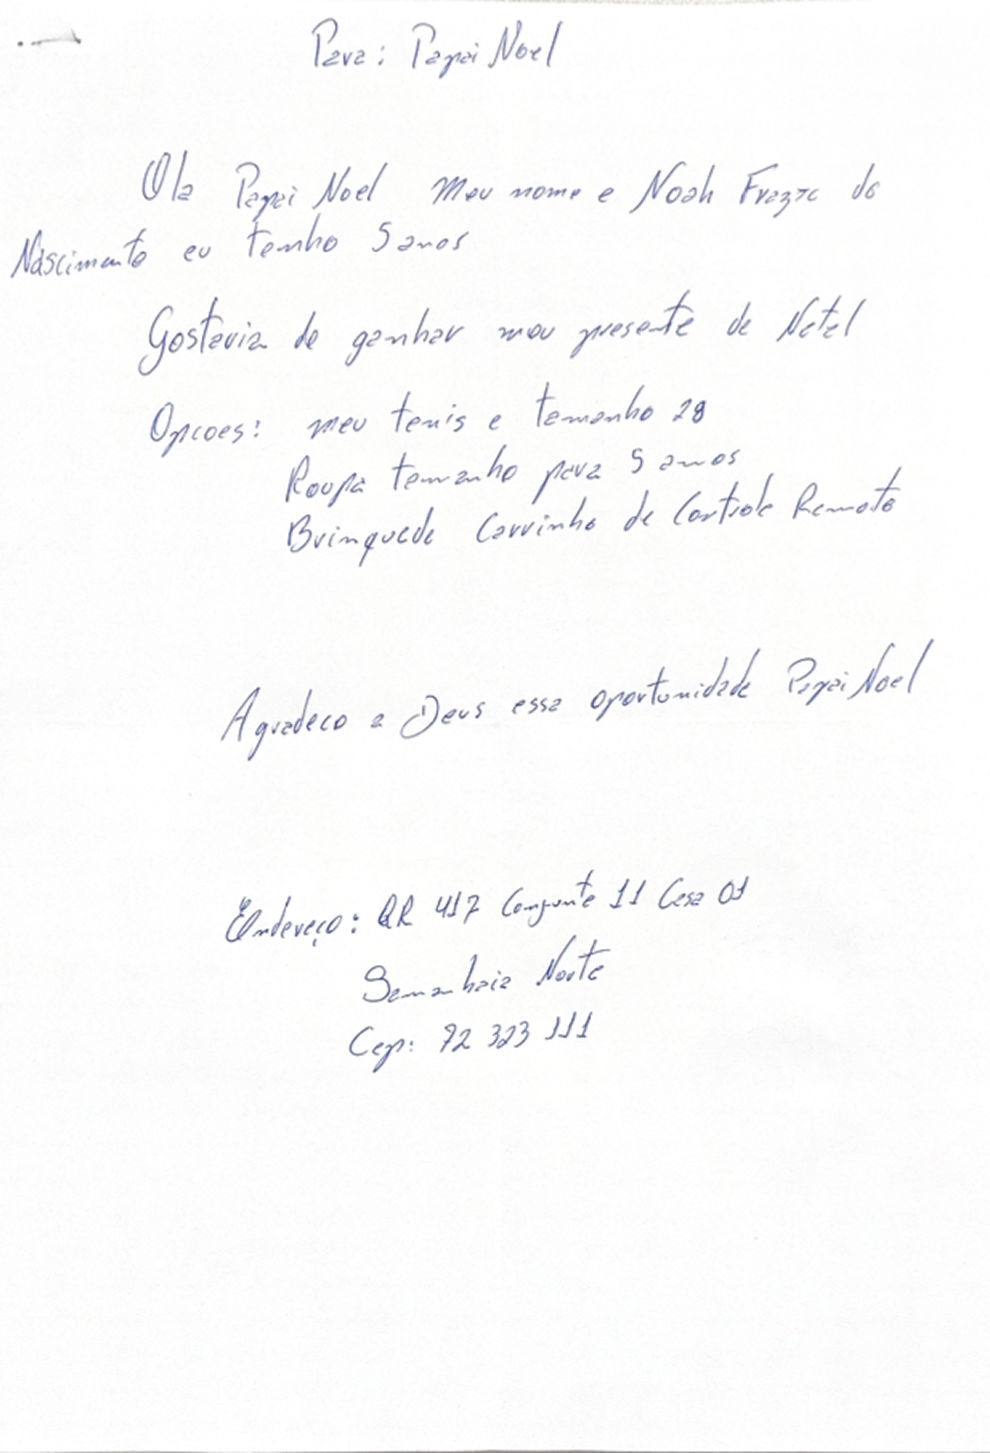 Para: Papai Noel
Ola Papai Noel Meu nome e Noah do
Nascimento eu tenho 5 anos
Gostaria de ganhar meu presente de Natal
Opcoes: meu tenis e tamanho 28
Roupa tamanho para 5 anos
Brinquedo Carrinho de Controle Remoto
Agradeco a Deus essa oportunidade Papai Noel
Endereço: QR 417 Conjunto 11 Casa 01
Samanbaia Norte
Cep: 72 323 111